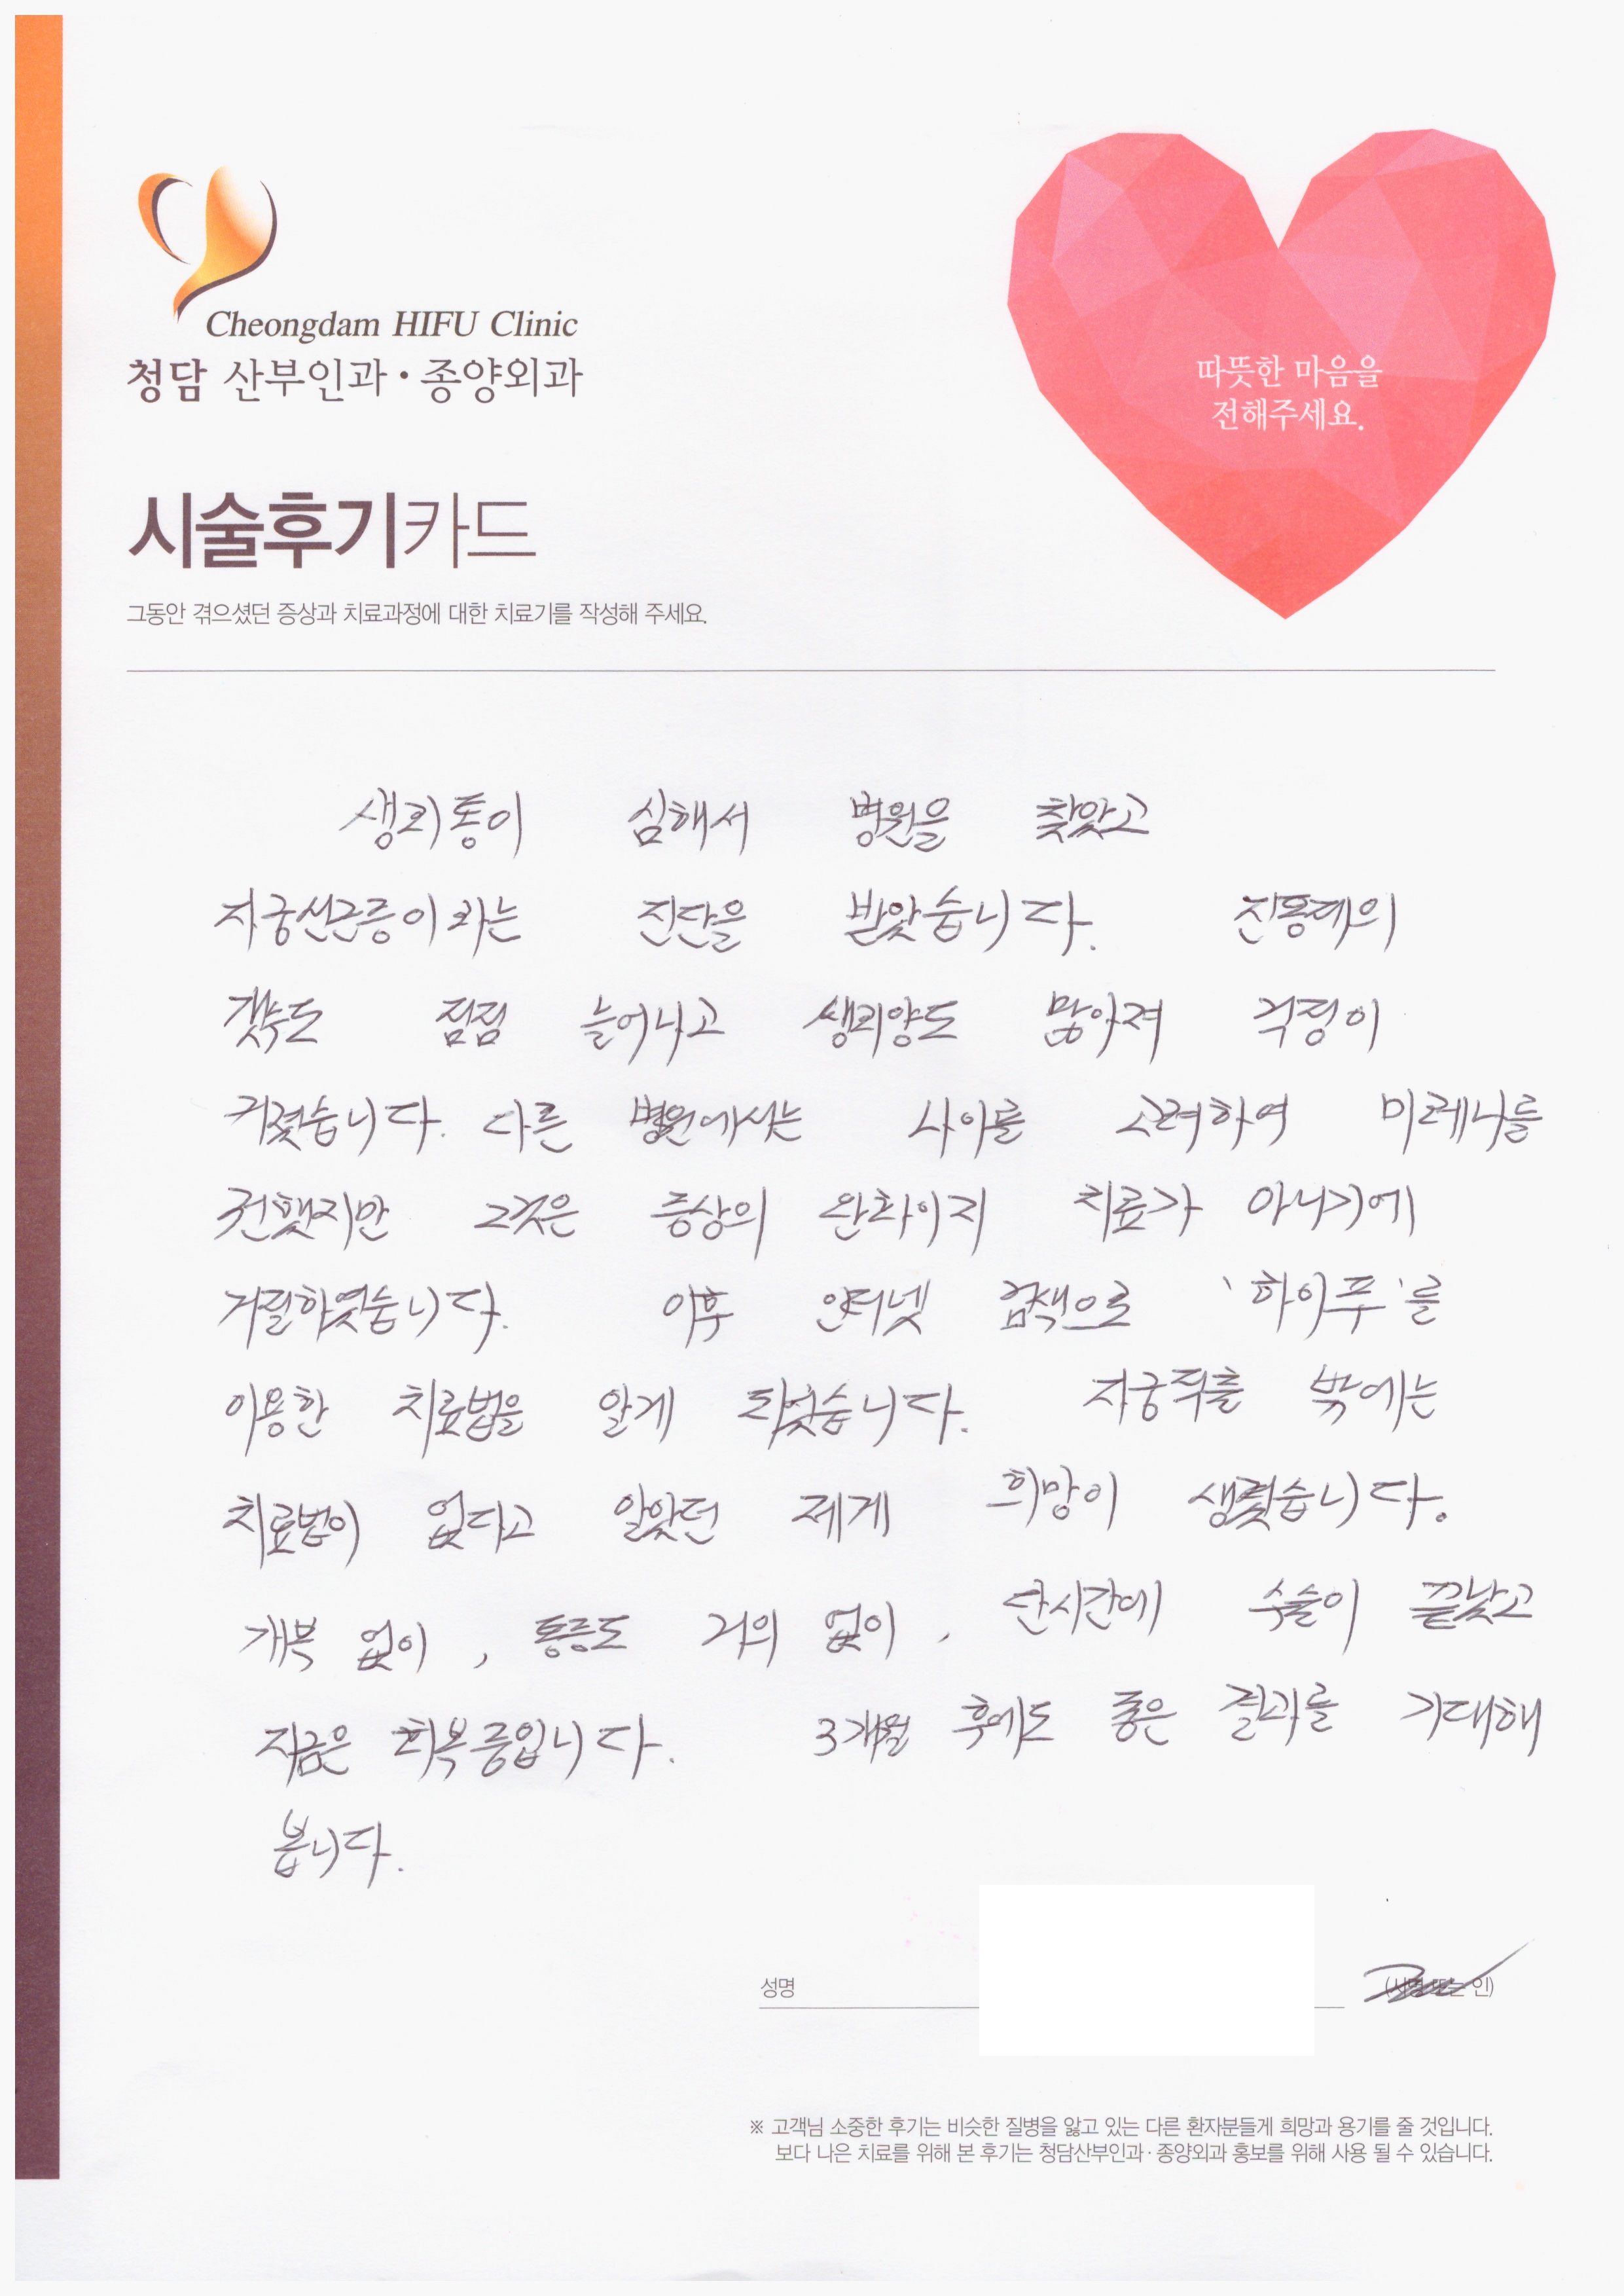 Cheongdam HIFU Clinic
청담 산부인과·종양외과
따뜻한 마음을
전해주세요.
시술후기카드
그동안 겪으셨던 증상과 치료과정에 대한 치료기를 작성해 주세요.
생리통이 심해서 병원을 찾았고
자궁선근증이라는 진단을 받았습니다. 진통제의
갯수도 점점 늘어나고 생리양도 많아져 걱정이
커졌습니다. 다른 병원에서는 나이를 고려하여 미레나를
권했지만 그것은 증상의 완화이지 치료가 아니기에
거절하였습니다. 이후 인터넷 검색으로 '하이푸'를
이용한 치료법을 알게 되었습니다. 자궁적출 밖에는
치료법이 없다고 알았던 제게 희망이 생겼습니다.
개복 없이, 통증도 거의 없이, 단시간에 수술이 끝났고
지금은 회복중입니다. 3개월 후에도 좋은 결과를 기대해
봅니다.
성명 (서명 또는 인)
※ 고객님 소중한 후기는 비슷한 질병을 앓고 있는 다른 환자분들게 희망과 용기를 줄 것입니다.
보다 나은 치료를 위해 본 후기는 청담산부인과·종양외과 홍보를 위해 사용 될 수 있습니다.